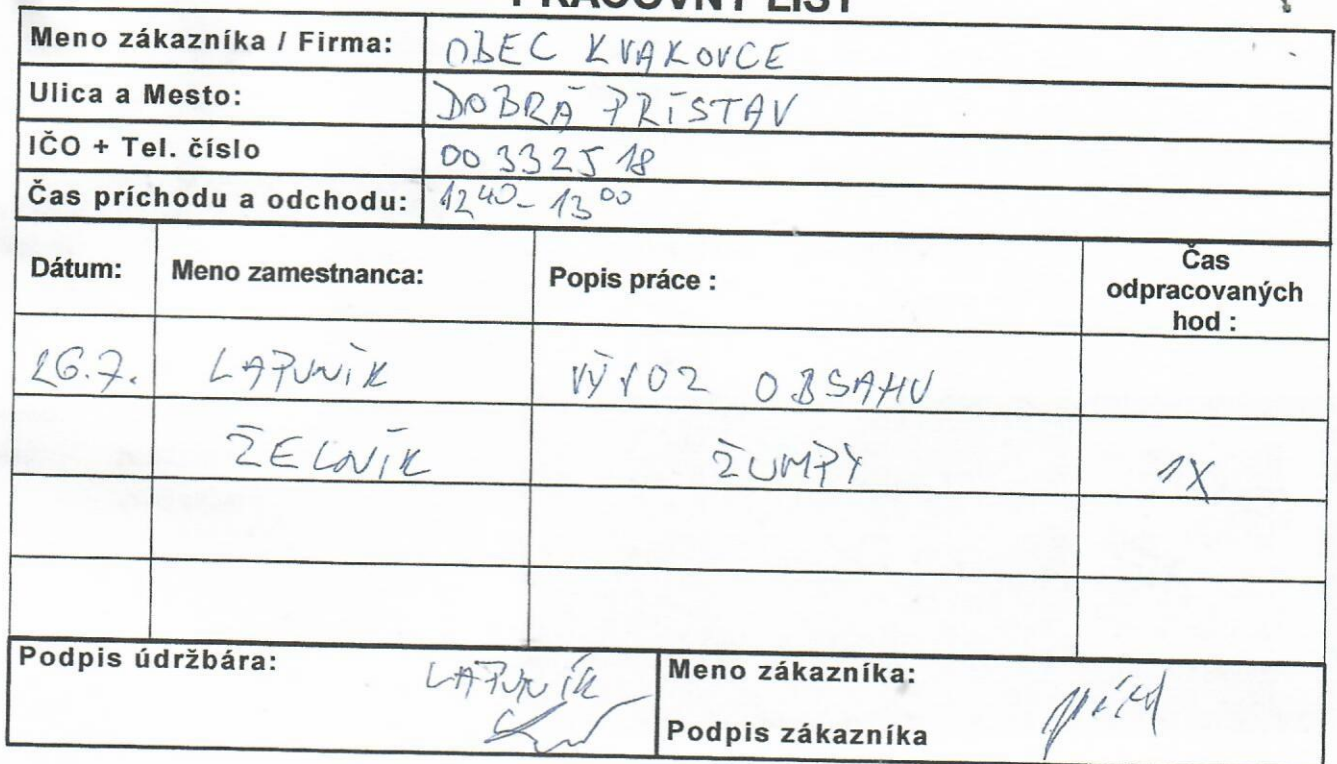 PRACOVNÝ LIST
Meno zákazníka / Firma: OBEC KVAKOVCE
Ulica a Mesto: DOBRÁ PRÍSTAV
IČO + Tel. číslo 00332518
Čas príchodu a odchodu: 12⁴⁰ - 13⁰⁰
Dátum: Meno zamestnanca: Popis práce : Čas odpracovaných hod :
26.7. LAPUNÍK VÝVOZ OBSAHU
ŽELNÍK ŽUMPY 1X
Podpis údržbára: LAPUNÍK Meno zákazníka:
Podpis zákazníka